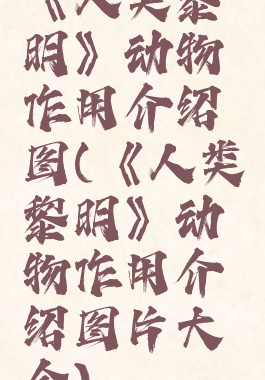 《人类黎
明》动物
作用介绍
图(《人类
黎明》动
物作用介
绍图片大
全)